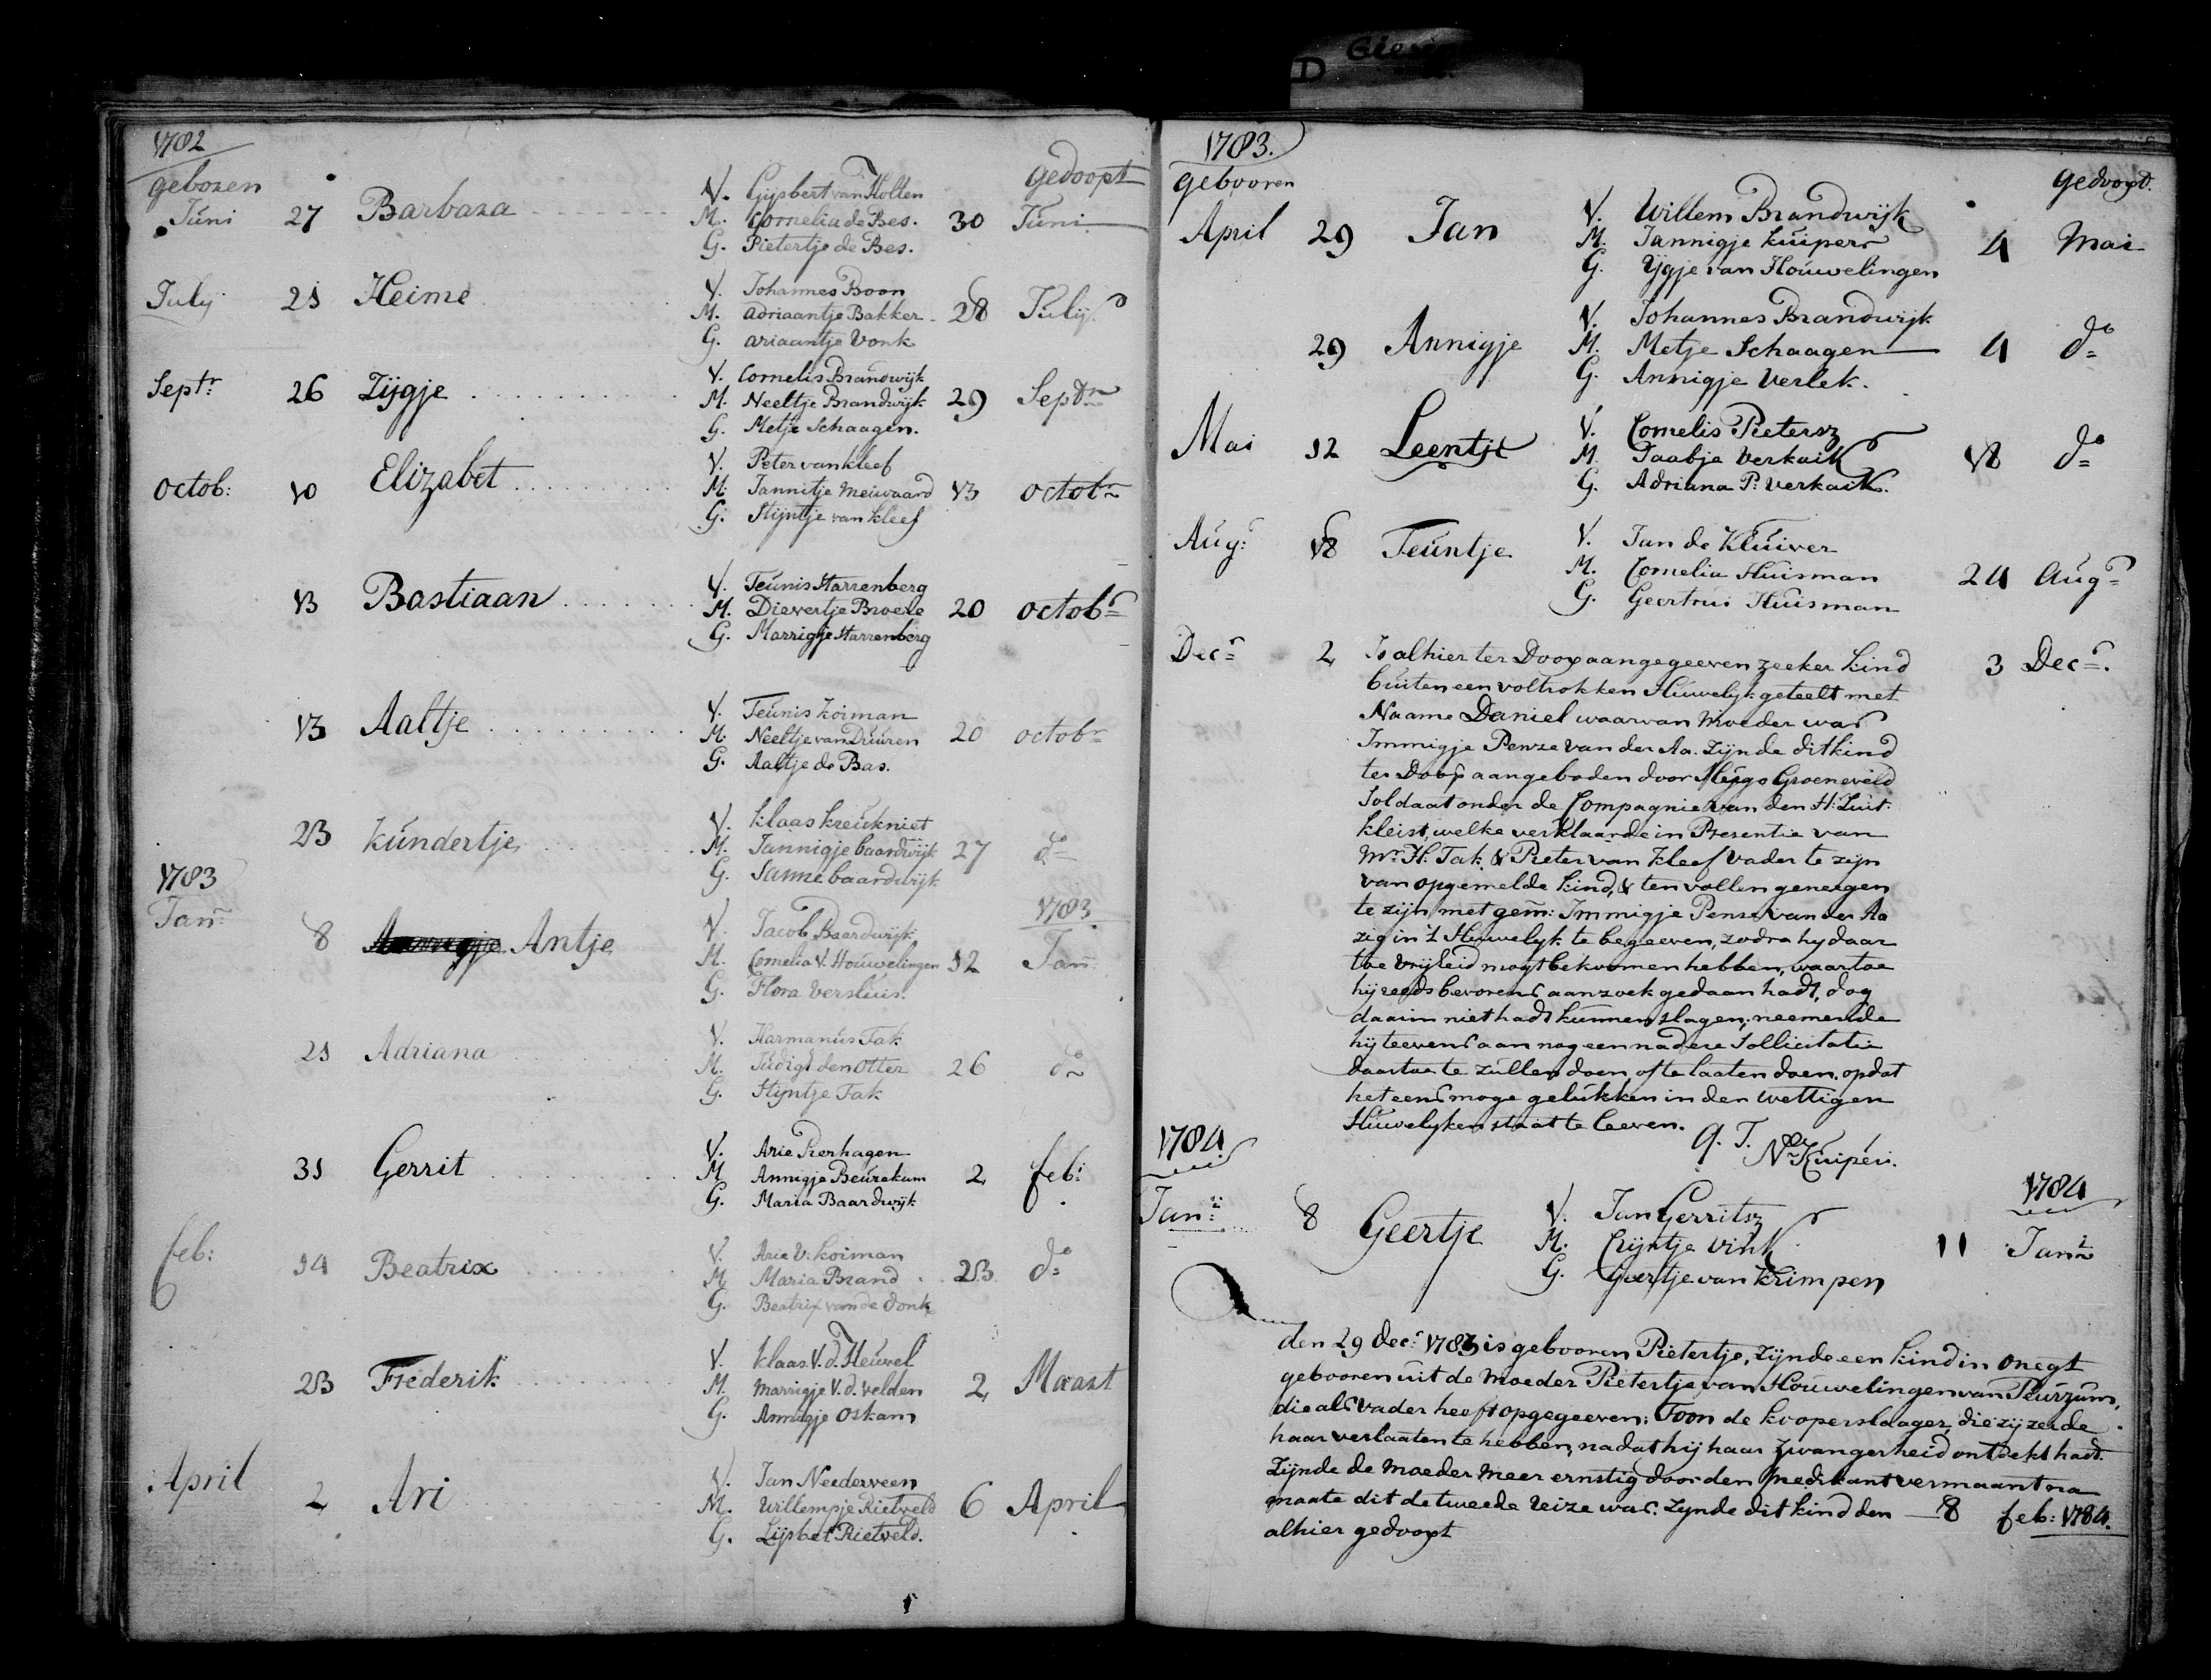 D Giess
1782
geboren gedoopt
Juni 27 Barbara V. Gijsbert van Holten
M. Cornelia de Bes. 30 Juni
G. Pietertje de Bes.
July 21 Heime V. Johannes Boon
M. adriaantje Bakker 28 July
G. ariaantje Vonk
Septr 26 Zijgje V. Cornelis Brandwijk
M. Neeltje Brandwijk 29 Septr
G. Metje Schaagen.
octob: 10 Elizabet V. Peter van kleef
M. Jannitje meiwaard 13 octobr
G. Stijntje van kleef
13 Bastiaan V. Teunis Harrenberg
M. Dievertje Broere 20 octobr
G. Marrigje Harrenberg
13 Aaltje V. Teunis koiman
M. Neeltje van Duuren 20 octobr
G. Aaltje de Bas.
23 kundertje V. klaas kreukniet
M. Jannigje baardwijk 27 do
G. Sanne baardwijk
1783 1783
Jan: 8 Antje V. Jacob Baardwijk
M. Cornelia V. Houwelingen 12 Jan:
G. Flora Versluis.
21 Adriana V. Harmanus Tak
M. Judigt den Otter 26 do
G. Stijntje Tak
31 Gerrit V. Arie Pierhagen
M. Annigje Beurekum 2 feb:
G. Maria Baardwijk
feb: 14 Beatrix V. Arie V. koiman
M. Maria Brand 23 do
G. Beatrix van de donk
23 Frederik V. klaas V. d. Heuvel
M. marrigje V. d. velden 2 Maart
G. Annigje Oskam
April 2 Ari V. Jan Neederveen
M. Willempje Rietveld 6 April
G. Lijsbet Rietveld.
1783.
gebooren gedoopt.
April 29 Jan V. Willem Brandwijk
M. Jannigje kuipers 4 Mai
G. Ygje van Houwelingen
29 Annigje V. Johannes Brandwijk
M. Metje Schaagen 4 do
G. Annigje Verlek.
Mai 12 Leentje V. Cornelis Pietersz
M. Jaabje Verkaik 18 do
G. Adriana P: Verkaik.
Aug: 18 Teuntje V. Jan de Kluiver
M. Cornelia Huisman 24 Aug:
G. Geertrui Huisman
Decr 2 Is alhier ter Doop aangegeeven zeeker kind 3 Decr.
buiten een voltrokken Huwelyk geteelt met
Naame Daniel waarvan moeder was
Immigje Pense van der Aa. zijnde dit kind
ter Doop aangeboden door Hugo Groeneveld
Soldaat onder de Compagnie van den H: Luit:
kleist, welke verklaarde in Presentie van
Mr. H. Tak & Pieter van Kleef vader te zijn
van opgemelde kind, & ten vollen geneegen
te zijn met gem: Immigje Pense van der Aa
zig in 't Huwelyk te begeeven, zodra hy daar
toe vrijheid mogt bekoomen hebben, waartoe
hij reeds bevorens aanzoek gedaan hadt, dog
daarin niet hadt kunnen slagen; neemende
hij teevens aan nog een nadere Sollicitatie
daartoe te zullen doen of te laaten doen. opdat
het eens moge gelukken in den wettigen
Huwelyken staat te leeven.
q. T.
Ns Kuiperi.
1784 1784
Jan: 8 Geertje V. Jan Gerritsz
M. Crijntje Vink 11 Jan:
G. Geertje van Krimpen
den 29 Decr 1783 is gebooren Pietertje, zijnde een kind in onegt
gebooren uit de moeder Pietertje van Houwelingen van Peurzum,
die als vader heeft opgegeeven: Toon de kooperslaager, die zij zeide
haar verlaaten te hebben, nadat hij haar zwangerheid ontdekt hadt.
Zijnde de moeder meer ernstig door den predikant vermaant na
maate dit de tweede reize was. zynde dit kind den 8 feb: 1784.
alhier gedoopt